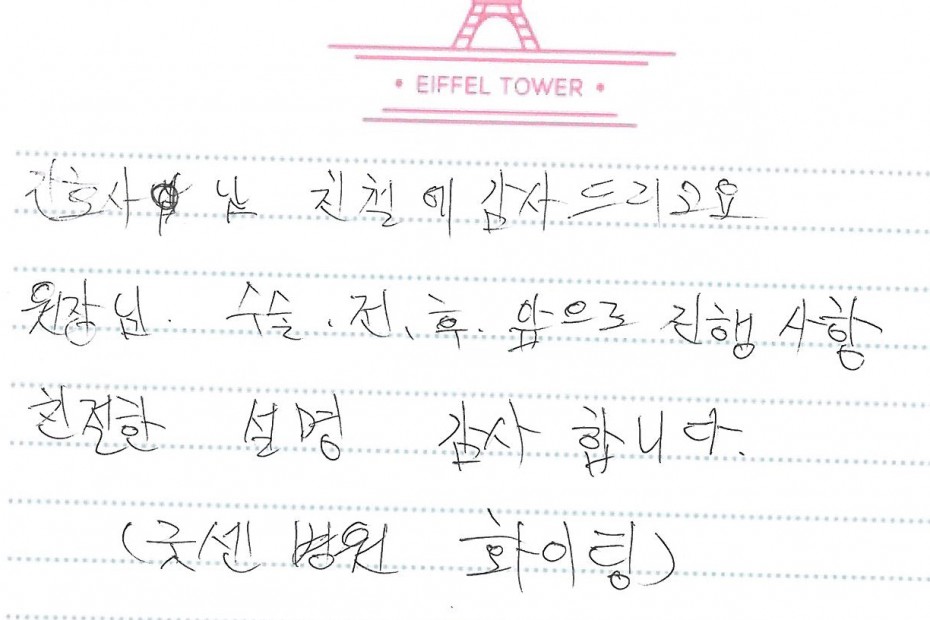 • EIFFEL TOWER •
간호사 님 친철에 감사드리고요
원장님. 수술.전、후.앞으로 진행 사항
친절한 설명 감사 합니다.
(굿센 병원 화이팅)